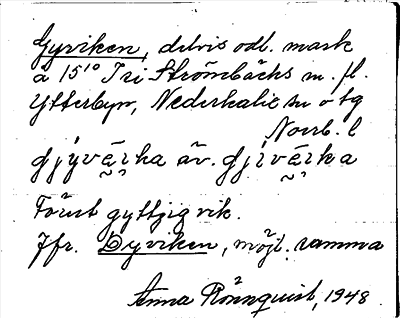 Gyviken, delvis odl. mark
å 15¹⁰ I ri Strömbäcks m. fl.
Ytterbyn, Nederkalix sn o tg
Norrb. l
gjyvēika äv. gjivēika
Förut gyttjig vik.
Jfr. Dyviken, möjl. samma
Anna Rönnquist, 1948.